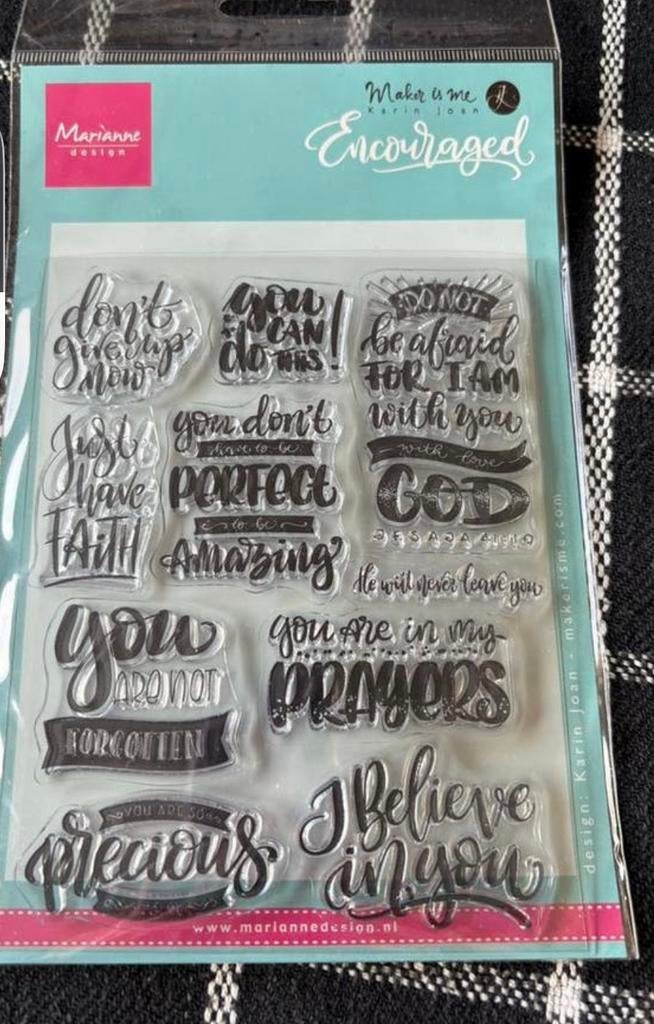 Maker is me
Karin Joan
Marianne
design
Encouraged
don't
give up
now
you
CAN
do THIS!
DO NOT
be afraid
FOR I AM
with you
with love
GOD
Just
have
FAITH
you don't
have to be
PERFECT
to be
Amazing
He will never leave you
you
ARE NOT
FORGOTTEN
you are in my
PRAYERS
YOU ARE SO
precious
I Believe
in you
design: Karin Joan - makerisme.com
www.mariannedesign.nl